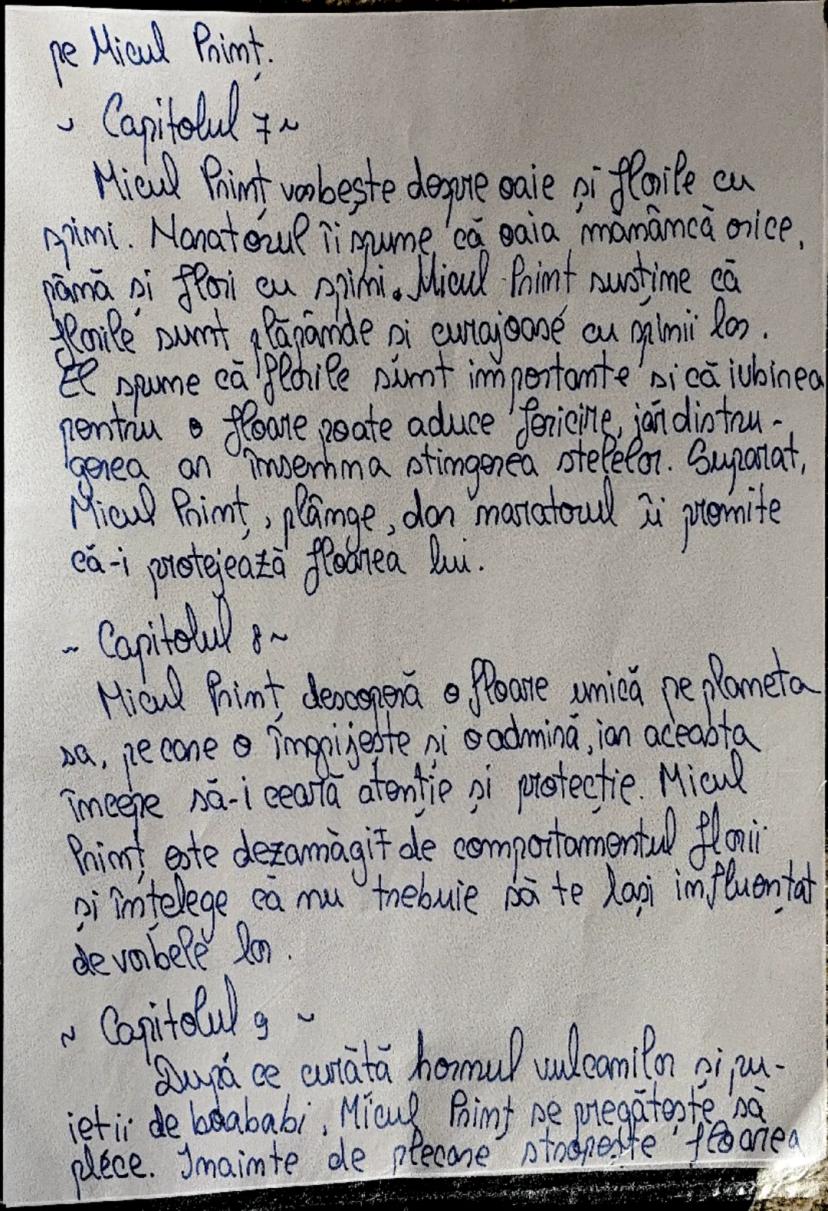 pe Micul Prinț.
~ Capitolul 7 ~
Micul Prinț vorbește despre oaie și florile cu
spini. Naratorul îi spune că oaia mănâncă orice,
până și flori cu spini. Micul Prinț susține că
florile sunt plăpânde și curajoase cu spinii lor.
El spune că florile sunt importante și că iubirea
pentru o floare poate aduce fericire, iar distru-
gerea ar însemna stingerea stelelor. Supărat,
Micul Prinț, plânge, dar naratorul îi promite
că-i protejează floarea lui.
~ Capitolul 8 ~
Micul Prinț descoperă o floare unică pe planeta
sa, pe care o îngrijește și o admiră, iar aceasta
începe să-i ceară atenție și protecție. Micul
Prinț este dezamăgit de comportamentul florii
și înțelege că nu trebuie să te lași influențat
de vorbele lor.
~ Capitolul 9 ~
După ce curăță hornul vulcanilor și pu-
ieții de boababi, Micul Prinț se pregătește să
plece. Inainte de plecare stropește floarea